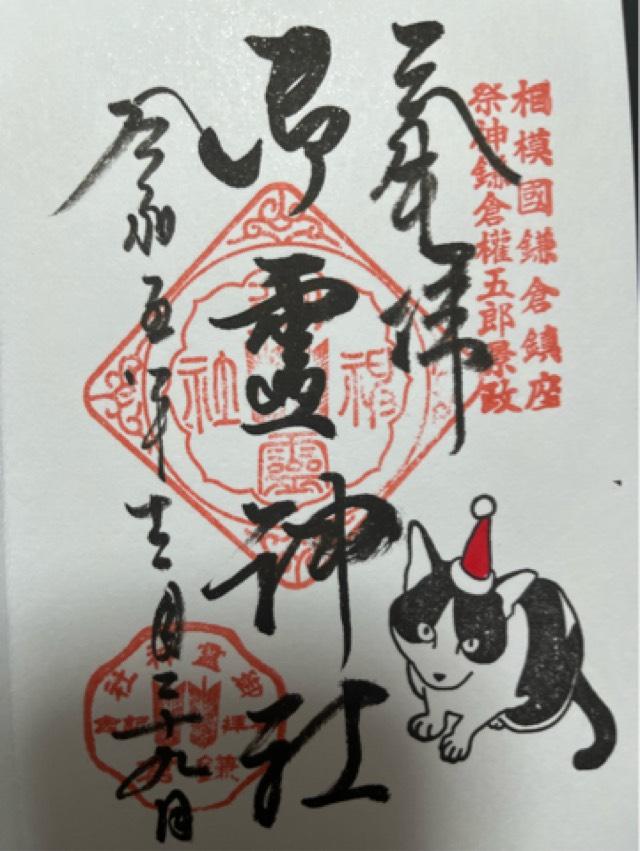 相模國鎌倉鎮座
祭神鎌倉權五郎景政
奉拝
御靈神社
令和五年十二月二十九日